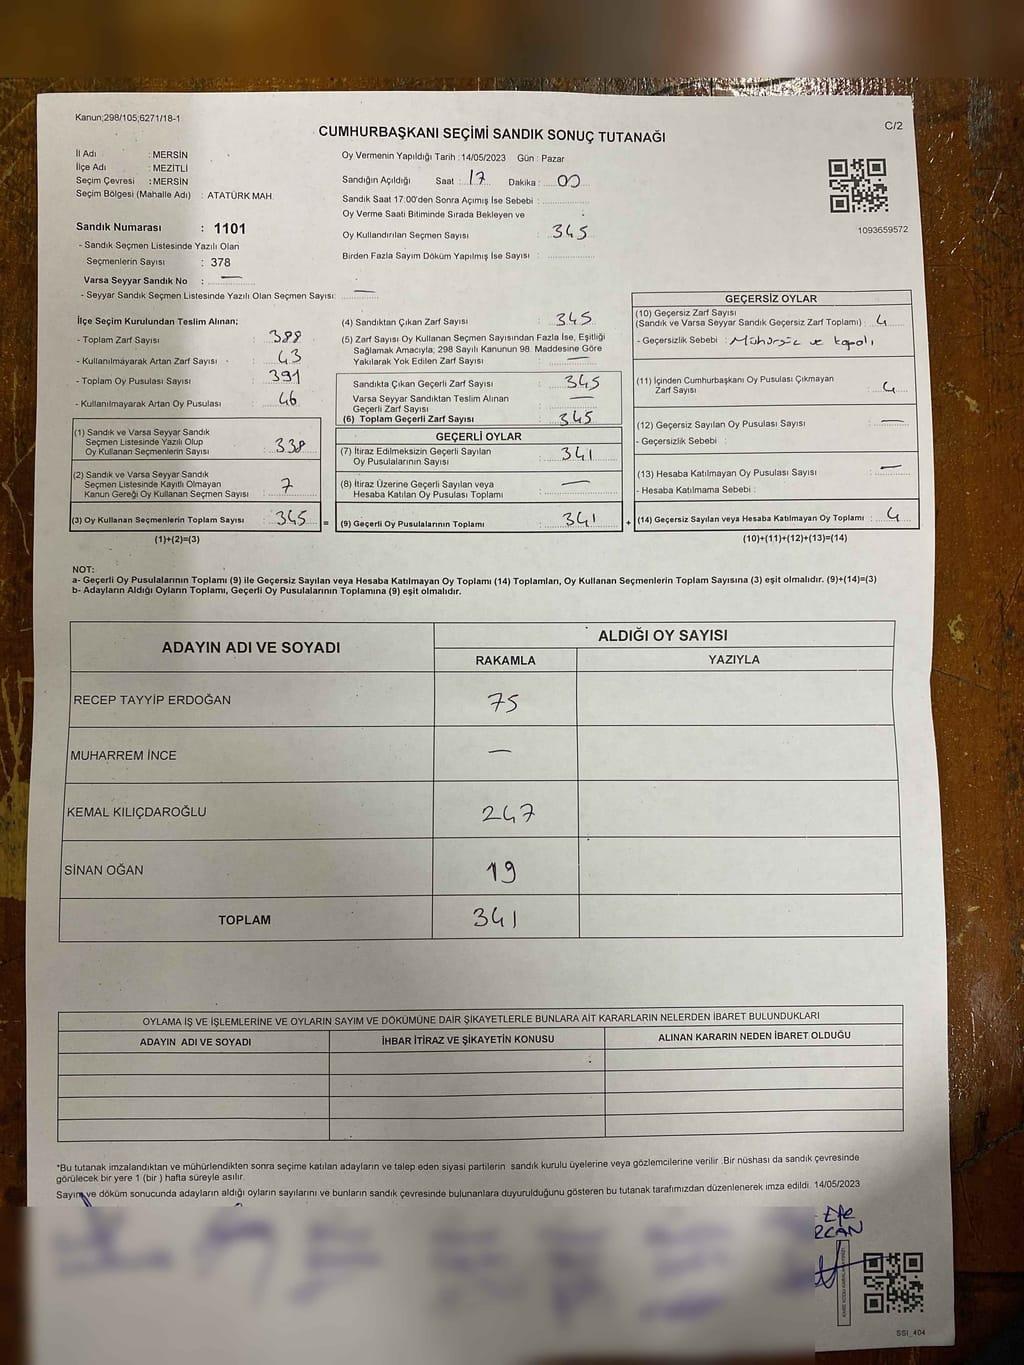 Kanun;298/105;6271/18-1
C/2
CUMHURBAŞKANI SEÇİMİ SANDIK SONUÇ TUTANAĞI
İl Adı : MERSİN
İlçe Adı : MEZİTLİ
Seçim Çevresi : MERSİN
Seçim Bölgesi (Mahalle Adı) : ATATÜRK MAH.
Sandık Numarası : 1101
- Sandık Seçmen Listesinde Yazılı Olan
Seçmenlerin Sayısı : 378
Varsa Seyyar Sandık No : —
- Seyyar Sandık Seçmen Listesinde Yazılı Olan Seçmen Sayısı: —
Oy Vermenin Yapıldığı Tarih : 14/05/2023 Gün : Pazar
Sandığın Açıldığı Saat : 17 Dakika : 00
Sandık Saat 17:00'den Sonra Açımış İse Sebebi :
Oy Verme Saati Bitiminde Sırada Bekleyen ve
Oy Kullandırılan Seçmen Sayısı : 345
Birden Fazla Sayım Döküm Yapılmış İse Sayısı :
1093659572
İlçe Seçim Kurulundan Teslim Alınan;
- Toplam Zarf Sayısı : 388
- Kullanılmayarak Artan Zarf Sayısı : 43
- Toplam Oy Pusulası Sayısı : 391
- Kullanılmayarak Artan Oy Pusulası : 46
(1) Sandık ve Varsa Seyyar Sandık
Seçmen Listesinde Yazılı Olup
Oy Kullanan Seçmenlerin Sayısı : 338
(2) Sandık ve Varsa Seyyar Sandık
Seçmen Listesinde Kayıtlı Olmayan
Kanun Gereği Oy Kullanan Seçmen Sayısı : 7
(3) Oy Kullanan Seçmenlerin Toplam Sayısı : 345 =
(1)+(2)=(3)
(4) Sandıktan Çıkan Zarf Sayısı : 345
(5) Zarf Sayısı Oy Kullanan Seçmen Sayısından Fazla İse, Eşitliği
Sağlamak Amacıyla; 298 Sayılı Kanunun 98. Maddesine Göre
Yakılarak Yok Edilen Zarf Sayısı : —
Sandıkta Çıkan Geçerli Zarf Sayısı : 345
Varsa Seyyar Sandıktan Teslim Alınan
Geçerli Zarf Sayısı : —
(6) Toplam Geçerli Zarf Sayısı : 345
GEÇERLİ OYLAR
(7) İtiraz Edilmeksizin Geçerli Sayılan
Oy Pusulalarının Sayısı : 341
(8) İtiraz Üzerine Geçerli Sayılan veya
Hesaba Katılan Oy Pusulası Toplamı : —
(9) Geçerli Oy Pusulalarının Toplamı : 341 +
GEÇERSİZ OYLAR
(10) Geçersiz Zarf Sayısı
(Sandık ve Varsa Seyyar Sandık Geçersiz Zarf Toplamı) : 4
- Geçersizlik Sebebi : Mühürsüz ve kapalı
(11) İçinden Cumhurbaşkanı Oy Pusulası Çıkmayan
Zarf Sayısı : 4
(12) Geçersiz Sayılan Oy Pusulası Sayısı : —
- Geçersizlik Sebebi :
(13) Hesaba Katılmayan Oy Pusulası Sayısı : —
- Hesaba Katılmama Sebebi :
(14) Geçersiz Sayılan veya Hesaba Katılmayan Oy Toplamı : 4
(10)+(11)+(12)+(13)=(14)
NOT:
a- Geçerli Oy Pusulalarının Toplamı (9) ile Geçersiz Sayılan veya Hesaba Katılmayan Oy Toplamı (14) Toplamları, Oy Kullanan Seçmenlerin Toplam Sayısına (3) eşit olmalıdır. (9)+(14)=(3)
b- Adayların Aldığı Oyların Toplamı, Geçerli Oy Pusulalarının Toplamına (9) eşit olmalıdır.
ADAYIN ADI VE SOYADI
ALDIĞI OY SAYISI
RAKAMLA YAZIYLA
RECEP TAYYİP ERDOĞAN 75
MUHARREM İNCE —
KEMAL KILIÇDAROĞLU 247
SİNAN OĞAN 19
TOPLAM 341
OYLAMA İŞ VE İŞLEMLERİNE VE OYLARIN SAYIM VE DÖKÜMÜNE DAİR ŞİKAYETLERLE BUNLARA AİT KARARLARIN NELERDEN İBARET BULUNDUKLARI
ADAYIN ADI VE SOYADI İHBAR İTİRAZ VE ŞİKAYETİN KONUSU ALINAN KARARIN NEDEN İBARET OLDUĞU
*Bu tutanak imzalandıktan ve mühürlendikten sonra seçime katılan adayların ve talep eden siyasi partilerin sandık kurulu üyelerine veya gözlemcilerine verilir .Bir nüshası da sandık çevresinde
görülecek bir yere 1 (bir ) hafta süreyle asılır.
Sayım ve döküm sonucunda adayların aldığı oyların sayılarını ve bunların sandık çevresinde bulunanlara duyurulduğunu gösteren bu tutanak tarafımızdan düzenlenerek imza edildi. 14/05/2023
Efe
SSI_404